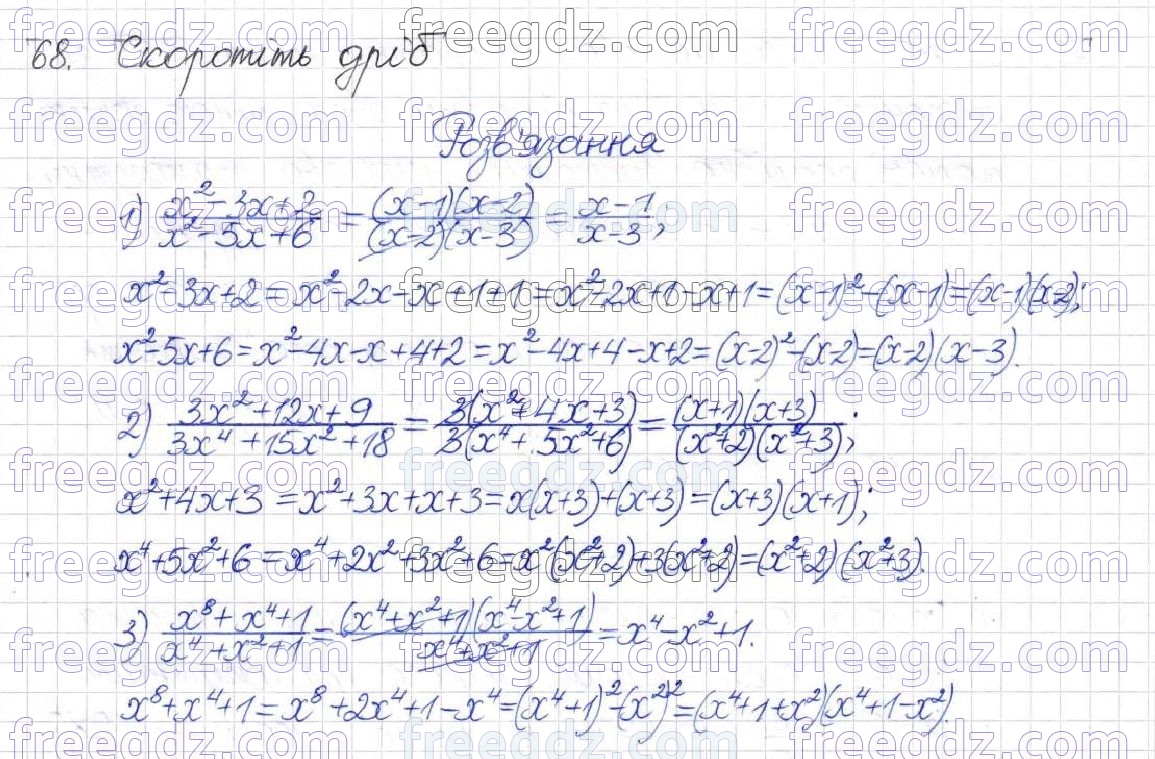 68. Скоротіть дріб
Розв'язання
1) (x² - 3x + 2)/(x² - 5x + 6) = ((x-1)(x-2))/((x-2)(x-3)) = (x-1)/(x-3);
x² - 3x + 2 = x² - 2x - x + 1 + 1 = x² - 2x + 1 - x + 1 = (x-1)² - (x-1) = (x-1)(x-2);
x² - 5x + 6 = x² - 4x - x + 4 + 2 = x² - 4x + 4 - x + 2 = (x-2)² - (x-2) = (x-2)(x-3).
2) (3x² + 12x + 9)/(3x⁴ + 15x² + 18) = (3(x² + 4x + 3))/(3(x⁴ + 5x² + 6)) = ((x+1)(x+3))/((x²+2)(x²+3));
x² + 4x + 3 = x² + 3x + x + 3 = x(x+3) + (x+3) = (x+3)(x+1);
x⁴ + 5x² + 6 = x⁴ + 2x² + 3x² + 6 = x²(x²+2) + 3(x²+2) = (x²+2)(x²+3).
3) (x⁸ + x⁴ + 1)/(x⁴ + x² + 1) = ((x⁴ + x² + 1)(x⁴ - x² + 1))/(x⁴ + x² + 1) = x⁴ - x² + 1.
x⁸ + x⁴ + 1 = x⁸ + 2x⁴ + 1 - x⁴ = (x⁴ + 1)² - (x²)² = (x⁴ + 1 + x²)(x⁴ + 1 - x²).
freegdz.com